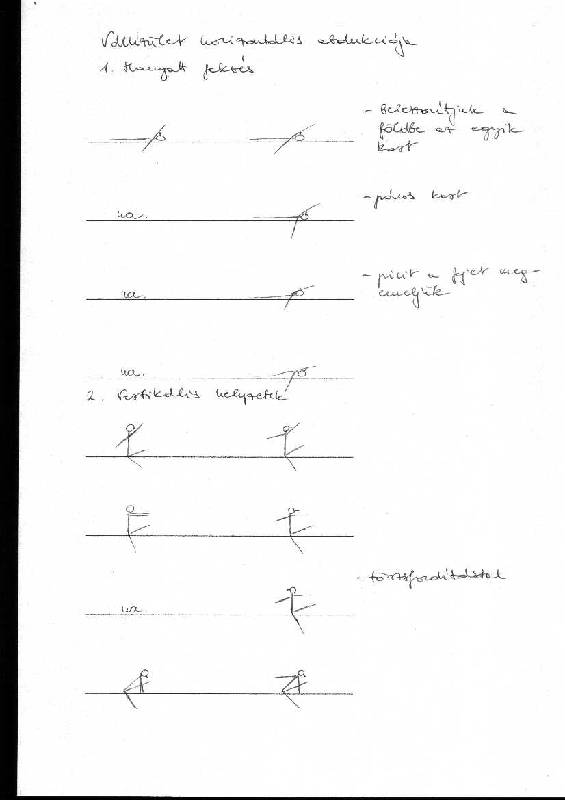 Vállízület horizontális abdukciója
1. Hanyatt fekvés
- beleszorítjuk a
földbe az egyik
kart
ua.
- páros kart
ua.
- picit a fejet meg-
emeljük
ua.
2. Vertikális helyzetek
ua.
- törzsfordítással